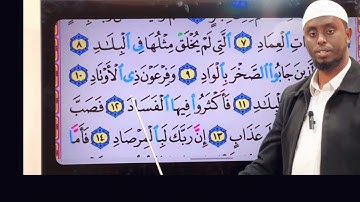 ـاتِ الْعِمَادِ ٧ الَّتِي لَمْ يُخْلَقْ مِثْلُهَا فِي الْبِلَـٰدِ ٨
الَّذِينَ جَابُوا الصَّخْرَ بِالْوَادِ ٩ وَفِرْعَوْنَ ذِي الْأَوْتَادِ ١٠
الْبِلَـٰدِ ١١ فَأَكْثَرُوا فِيهَا الْفَسَادَ ١٢ فَصَبَّ
عَذَابٍ ١٣ إِنَّ رَبَّكَ لَبِالْمِرْصَادِ ١٤ فَأَمَّا